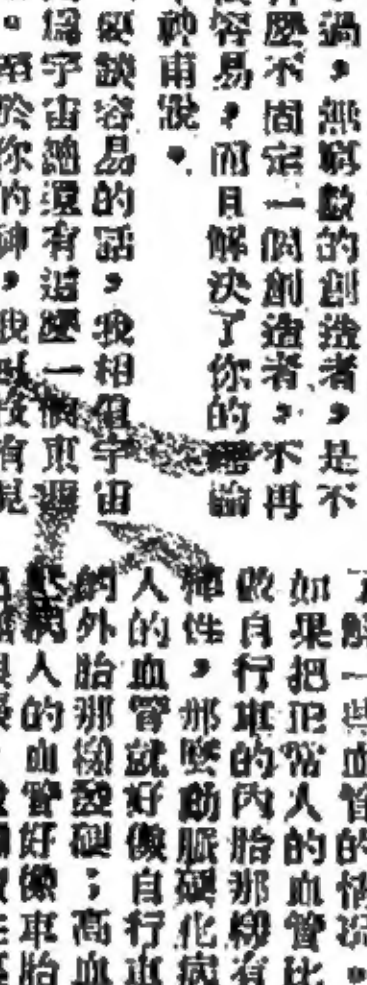 過，無窮數的創造者，是不
麼不固定一個創造者，不再
容易，而且解決了你的理論
神甫說。
要說容易的話，我相信宇宙
爲宇宙總還有這麼一個東西
於你的神，我
了解一些血管的情況。
如果把正常人的血管比
做自行車的內胎那樣有
彈性，那麼動脈硬化病
人的血管就好像自行車
的外胎那樣堅硬；高血
壓病人的血管好像車胎